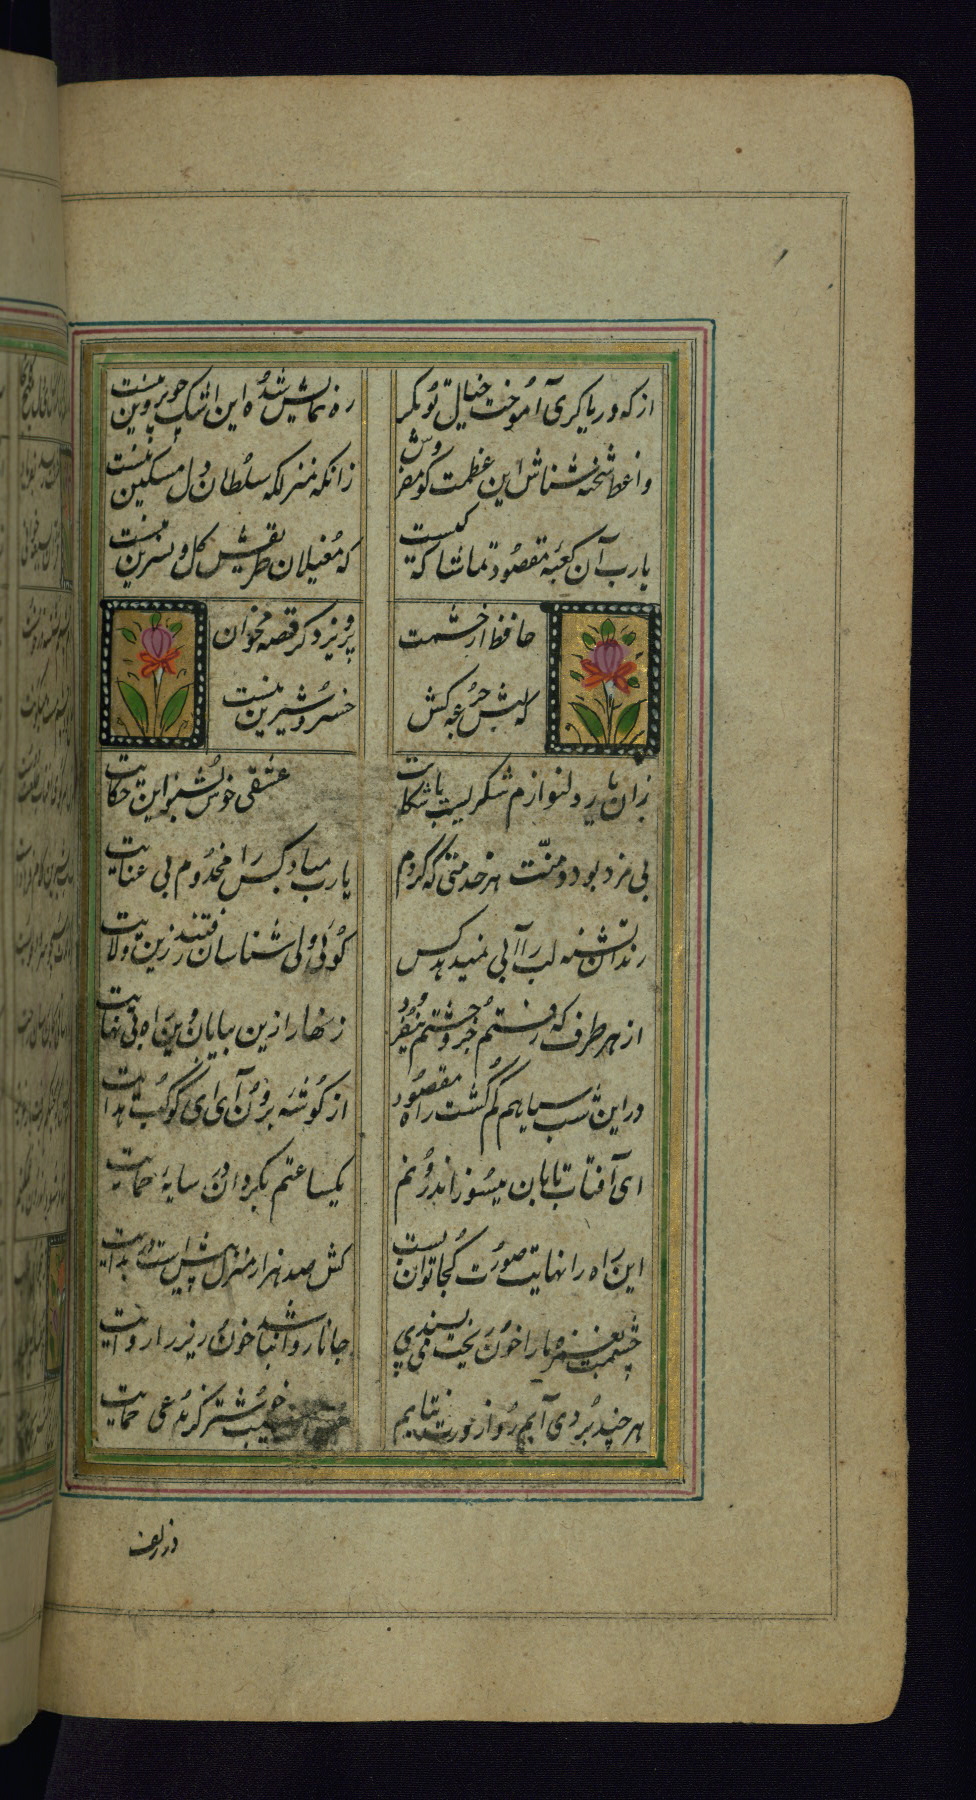 از که دریا کری آموخت خیال تو مکر ره نمایش شده این اشک چو پروین نیست
واعظ شحنه شناس این عظمت کو مفروش زانکه منزلکه سلطان دل مسکین نیست
یارب آن کعبه مقصود تماشا که کیست که مغیلان طریقش کل و نسرین نیست
حافظ از حشمت پرویز دکر قصه مخوان
که لبش جرعه کش خسرو شیرین نیست
زان یار دلنوازم شکریست با شکایت عشقی خوش بشنو این حکایت
بی مزد بود و منت هر خدمتی که کردم یارب مباد کس را مخدوم بی عنایت
رندان تشنه لب را آبی نمیدهد کس کوئی ولی شناسان رفتند ازین ولایت
از هر طرف که رفتم جز وحشتم نیفزود زنهار ازین بیابان وین راه بی نهایت
در این شب سیاهم کم کشت راه مقصود از کوشه برون آی ای کوکب هدایت
ای آفتاب تابان میسوزد اندرونم یکساعتم بکردان در سایه حمایت
این راه را نهایت صورت کجا توان بست کش صد هزار منزل پیش است در بدایت
چشمت بغمزه مارا خون ریخت می پسندی جانا روا نباشد خون ریز را روایت
هر چند بردی آبم رو از درت نتابم خوشتر کز مدعی حمایت
در زلف